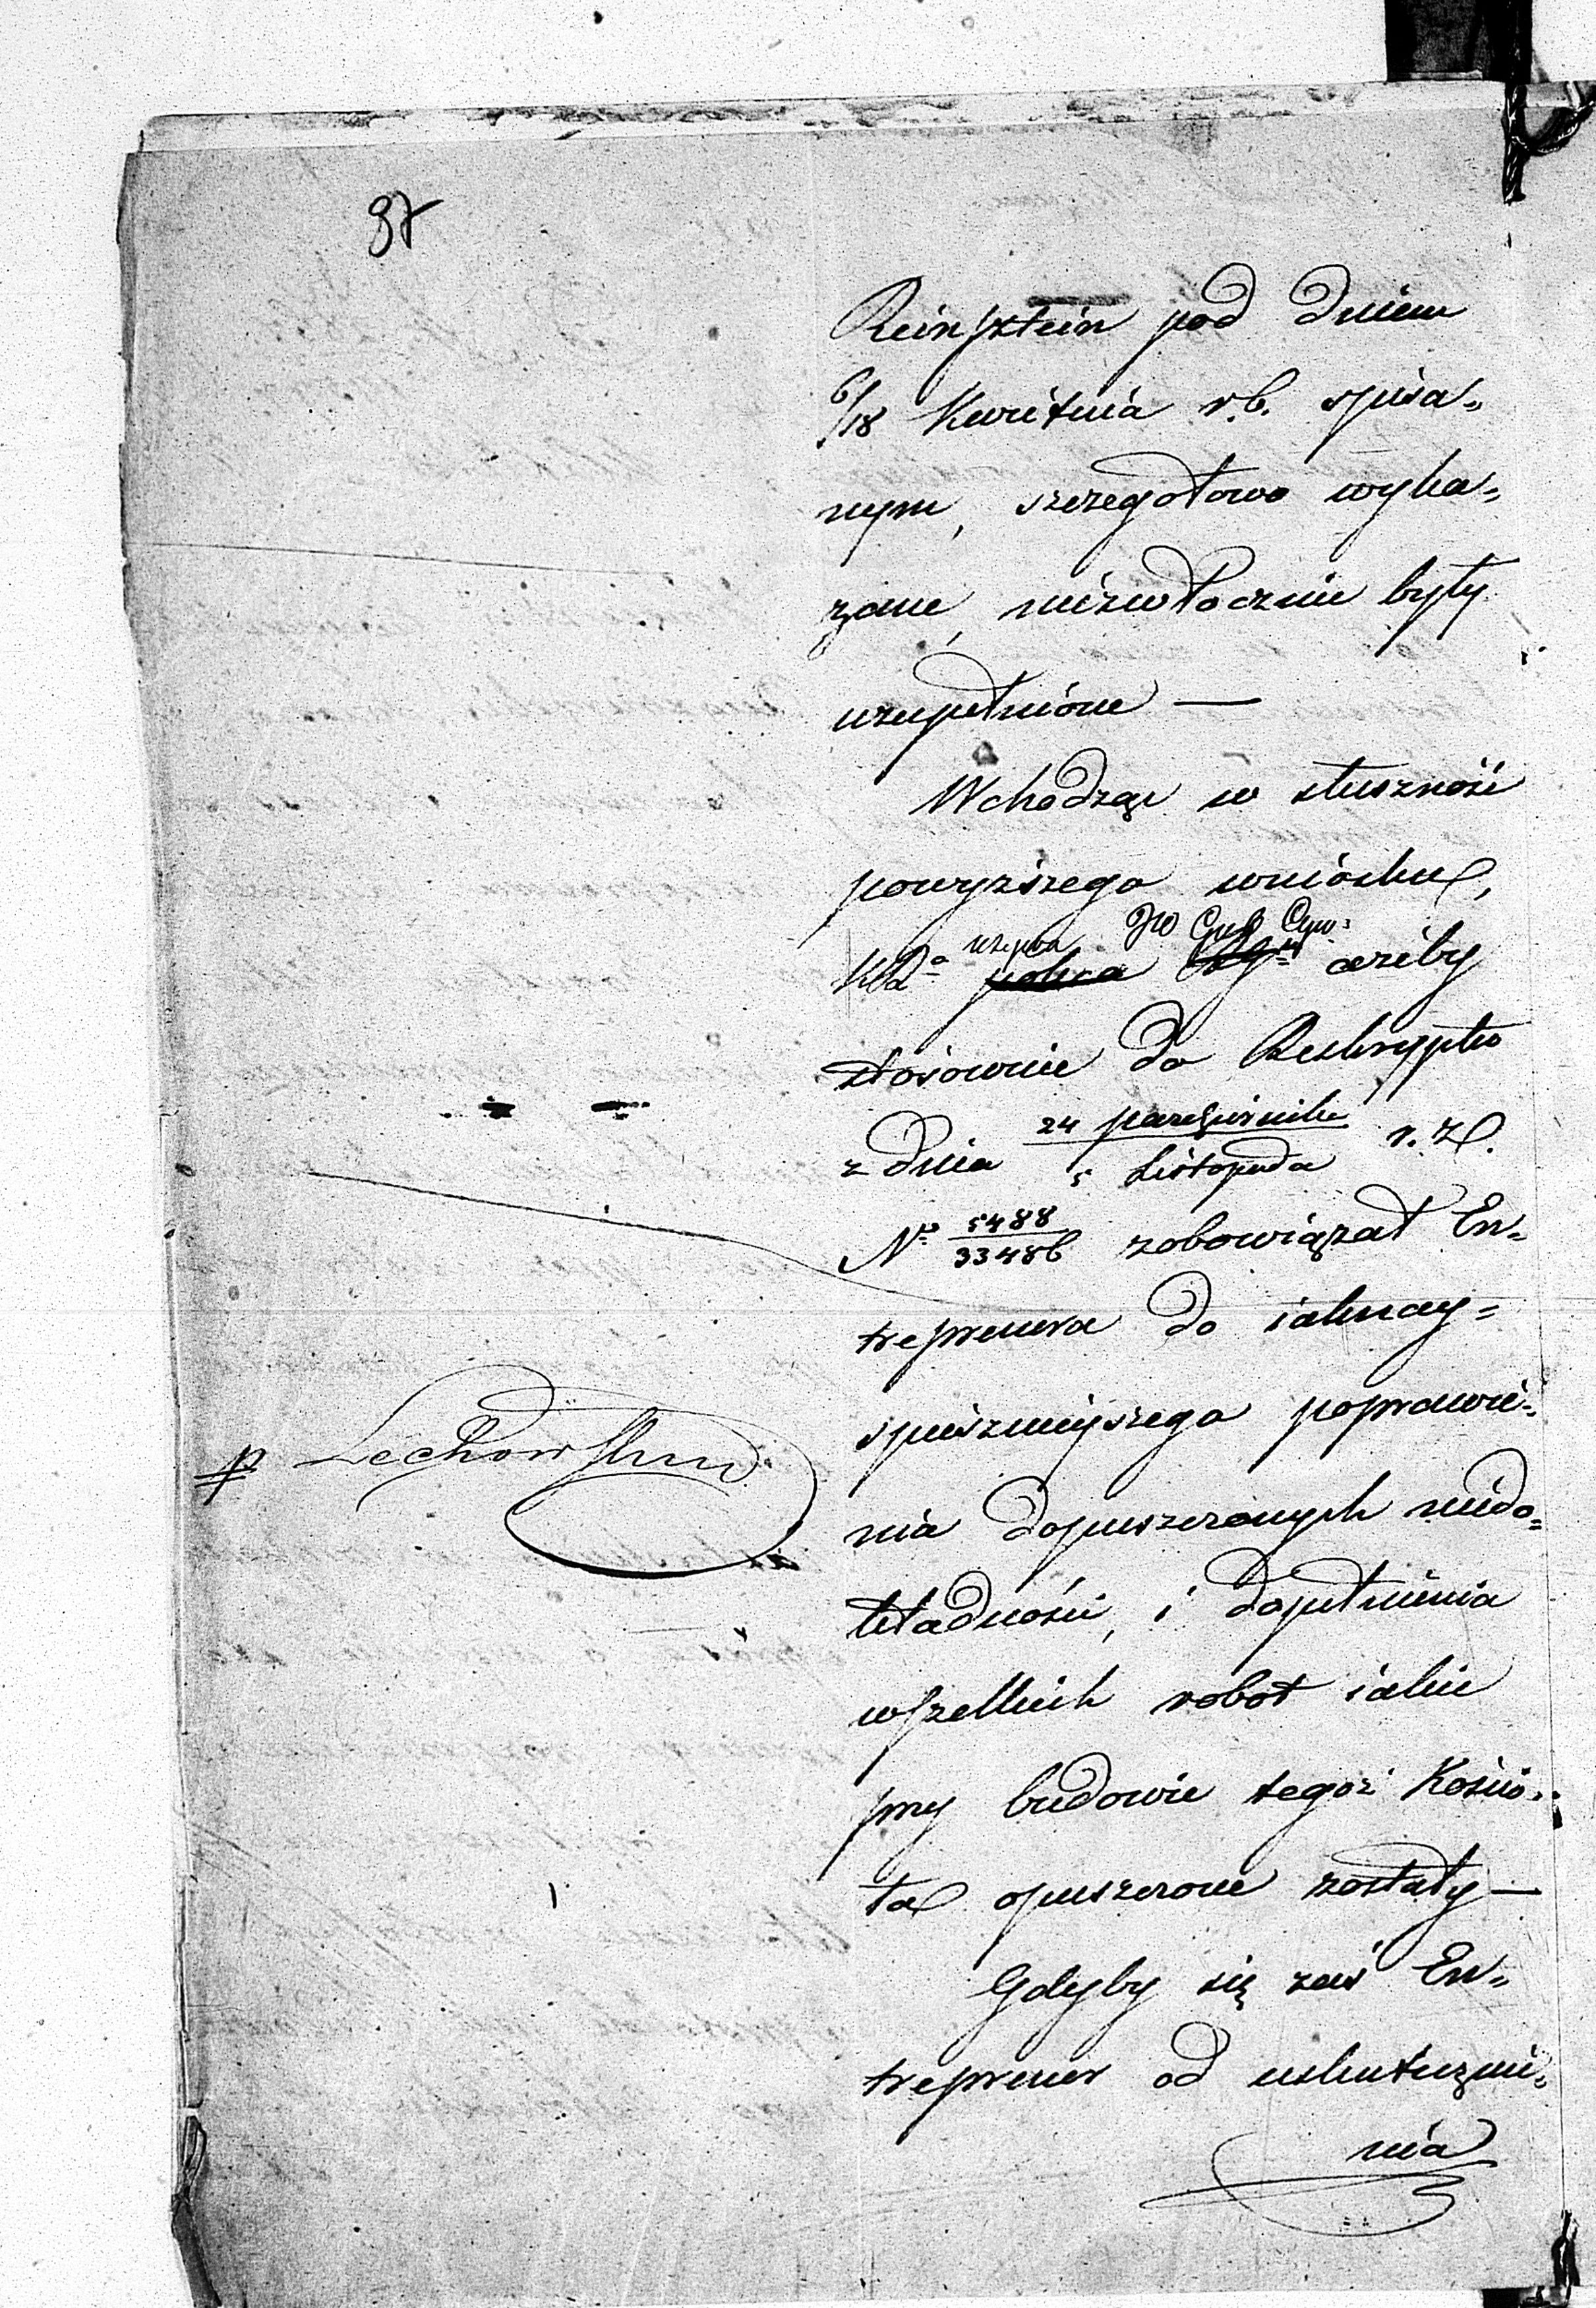 97
Reinsztein pod dniem
6/18 Kwietnia r.b. spisa„
nym, szczegołowo wyka=
zane, niezwłocznie były
uzupełnione —
Wchodząc w słuszność
powyższego wniosku,
wzywa JW Gub Cyw:
KRa polica ażeby
stósownie do Reskryptu
z dnia 24 października / 5 Listopada r. z.
No 5488/33486 zobowiązał En„
treprenera do iaknay=
spieszniejszego poprawie„
nia dopuszczonych niedo=
kładności, i dopełnienia
wszelkich robot iakie
przy budowie tegoż Kościo„
ła opuszczone zostały —
Gdyby się zaś En„
treprener od uskuteczni„
nia
p Lechowski